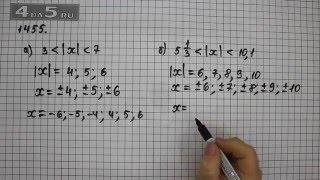 4DA5.RU
1455.
а) 3 < |x| < 7
|x| = 4; 5; 6
x = ±4; ±5; ±6
x = -6; -5; -4; 4; 5; 6
б) 5 1/3 < |x| < 10,1
|x| = 6, 7, 8, 9, 10
x = ±6; ±7; ±8; ±9; ±10
x =